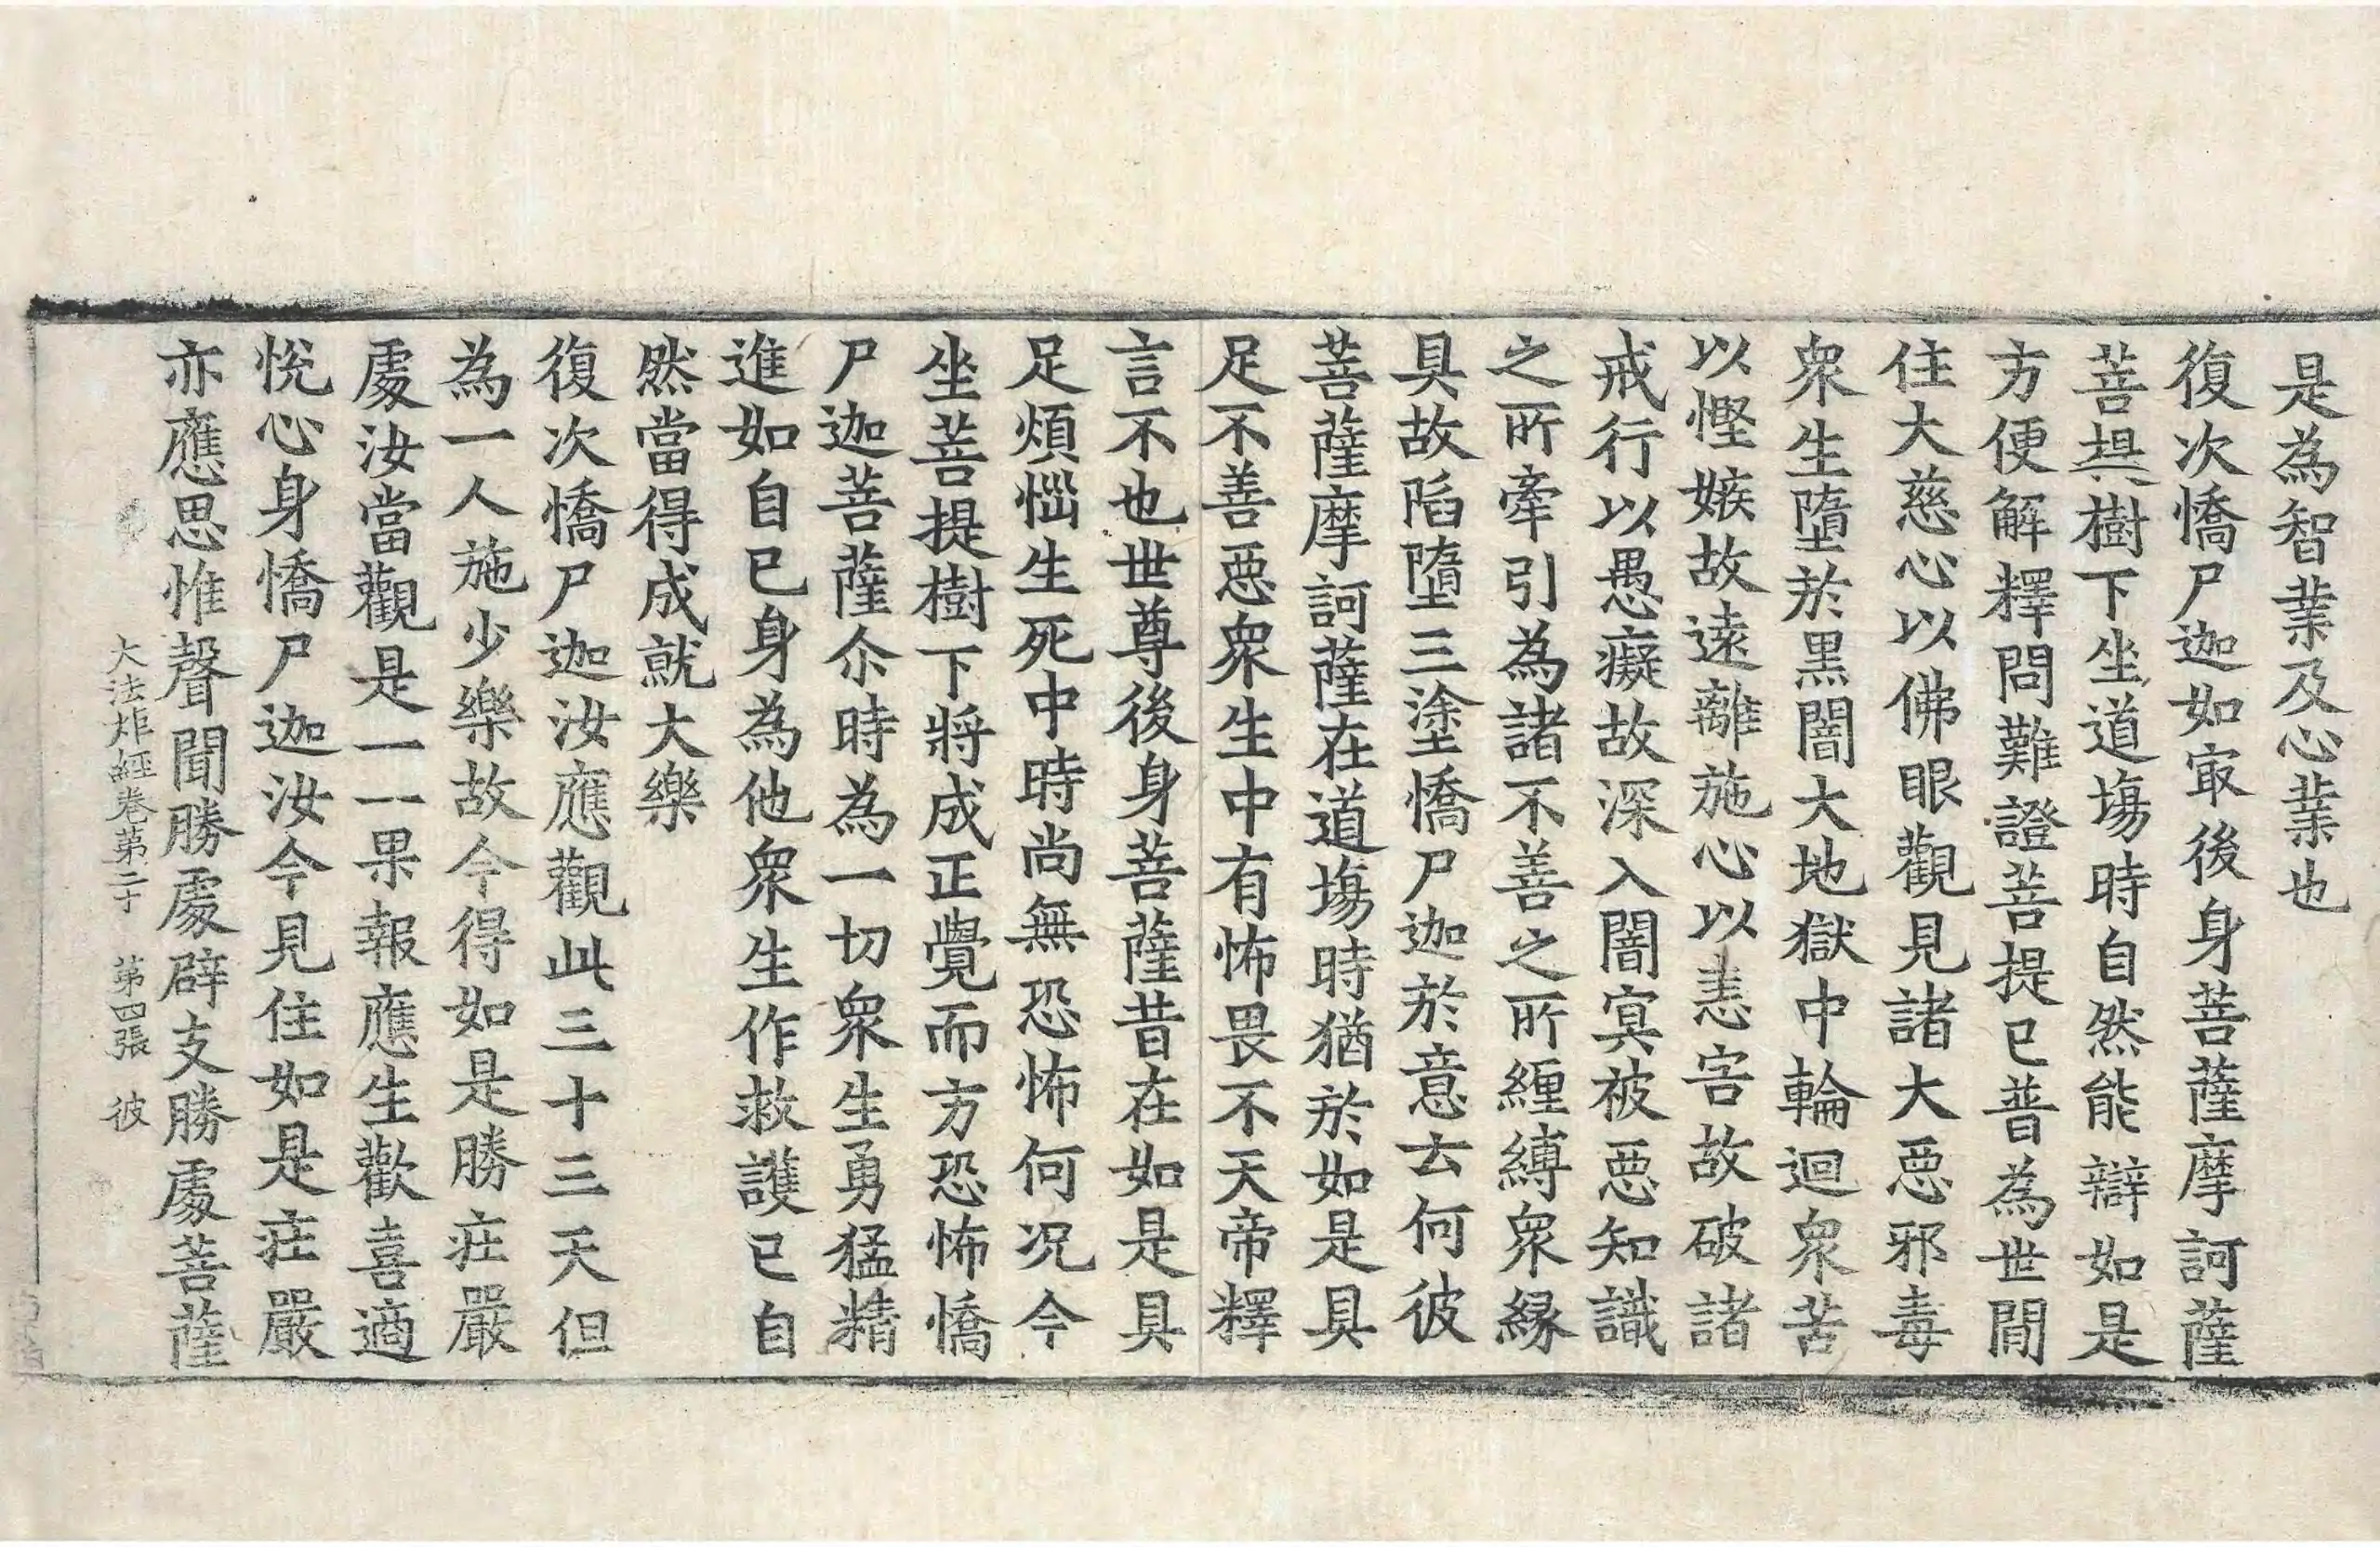 是為智業及心業也
復次憍尸迦如㝡後身菩薩摩訶薩
菩提樹下坐道場時自然能辯如是
方便解釋問難證菩提已普為世間
住大慈心以佛眼觀見諸大惡邪毒
衆生墮於黒闇大地獄中輪迴衆苦
以慳嫉故遠離施心以恚害故破諸
戒行以愚癡故深入闇冥被惡知識
之所牽引為諸不善之所纒縛衆縁
具故陷墮三塗憍尸迦於意云何彼
菩薩摩訶薩在道場時猶於如是具
足不善惡衆生中有怖畏不天帝釋
言不也世尊後身菩薩昔在如是具
足煩惱生死中時尚無恐怖何況今
坐菩提樹下將成正覺而方恐怖憍
尸迦菩薩尒時為一切衆生勇猛精
進如自己身為他衆生作救護已自
然當得成就大樂
復次憍尸迦汝應觀此三十三天但
為一人施少樂故今得如是勝莊嚴
處汝當觀是一一果報應生歡喜適
悅心身憍尸迦汝今見住如是莊嚴
亦應思惟聲聞勝處辟支勝處菩薩
大法炬經卷第二十 第四張 彼